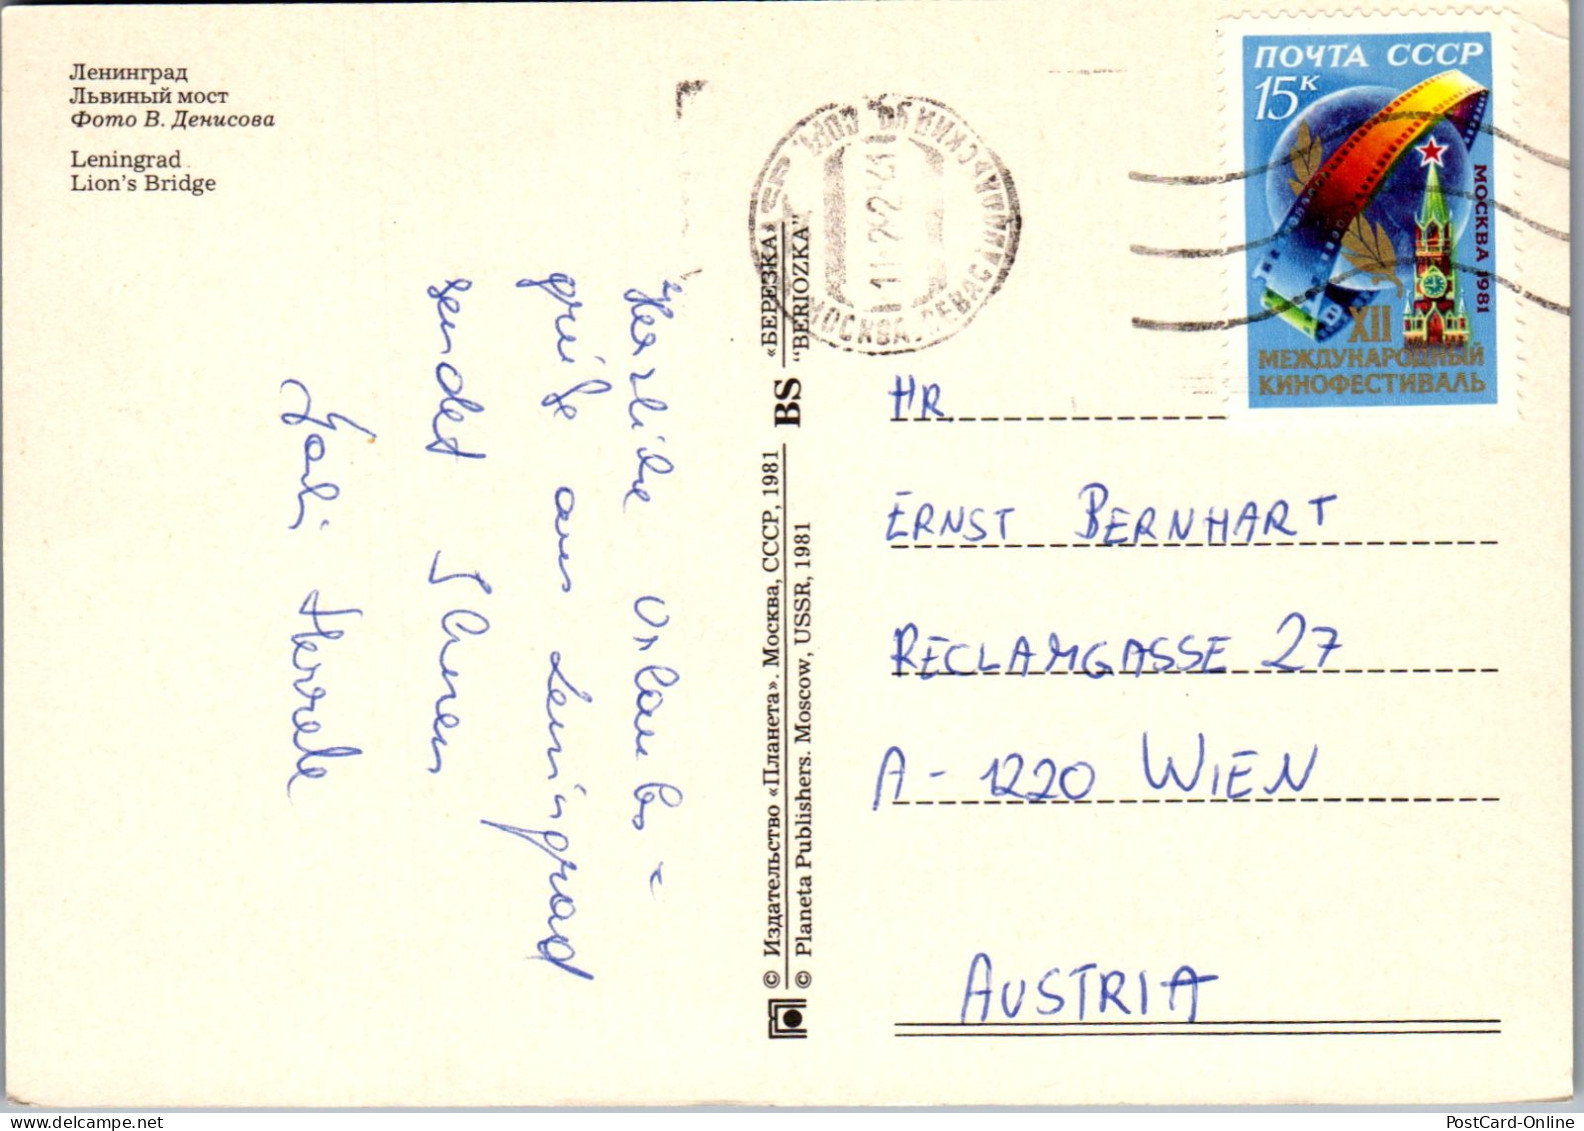 Ленинград
Львиный мост
Фото В. Денисова
Leningrad
Lion's Bridge
Herzliche Urlaubs=
grüße aus Leningrad
sendet Ihnen
© Издательство «Планета». Москва, СССР, 1981
© Planeta Publishers. Moscow, USSR, 1981
BS
«БЕРЕЗКА»
"BERIOZKA"
МОСКВА
ПОЧТА СССР
15к
МОСКВА 1981
XII
МЕЖДУНАРОДНЫЙ
КИНОФЕСТИВАЛЬ
HR.
ERNST BERNHART
RECLAMGASSE 27
A - 1220 WIEN
AUSTRIA
PostCard-Online